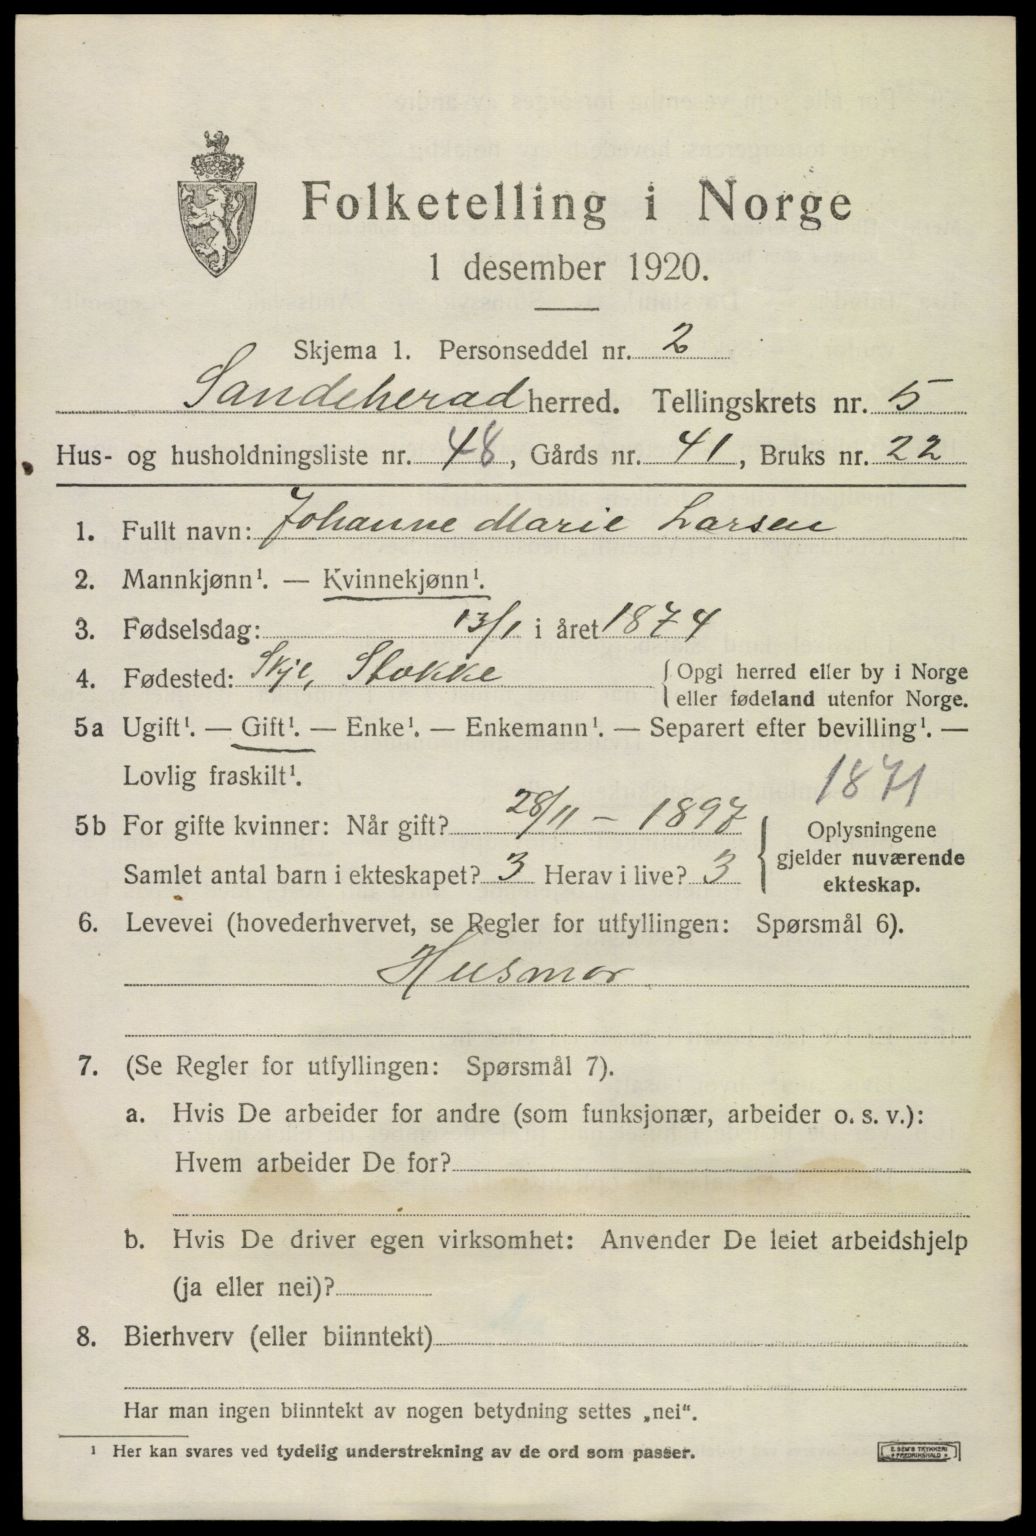 Folketelling i Norge
1 desember 1920.
Skjema 1. Personseddel nr. 2
Sandeherad herred. Tellingskrets nr. 5
Hus- og husholdningsliste nr. 48, Gårds nr. 41, Bruks nr. 22
1. Fullt navn: Johanne Marie Larsen
2. Mannkjønn¹. — Kvinnekjønn¹.
3. Fødselsdag: 13/1 i året 1874
4. Fødested: Skje, Stokke { Opgi herred eller by i Norge
eller fødeland utenfor Norge.
5a Ugift¹. — Gift¹. — Enke¹. — Enkemann¹. — Separert efter bevilling¹. —
Lovlig fraskilt¹.
1871
5b For gifte kvinner: Når gift? 28/11 – 1897 } Oplysningene
gjelder nuværende
Samlet antal barn i ekteskapet? 3 Herav i live? 3
ekteskap.
6. Levevei (hovederhvervet, se Regler for utfyllingen: Spørsmål 6).
Husmor
7. (Se Regler for utfyllingen: Spørsmål 7).
a. Hvis De arbeider for andre (som funksjonær, arbeider o. s. v.):
Hvem arbeider De for?
b. Hvis De driver egen virksomhet: Anvender De leiet arbeidshjelp
(ja eller nei)?
8. Bierhverv (eller biinntekt)
Har man ingen biinntekt av nogen betydning settes „nei".
¹ Her kan svares ved tydelig understrekning av de ord som passer.
E. SEM'S TRYKKERI
FREDRIKSHALD